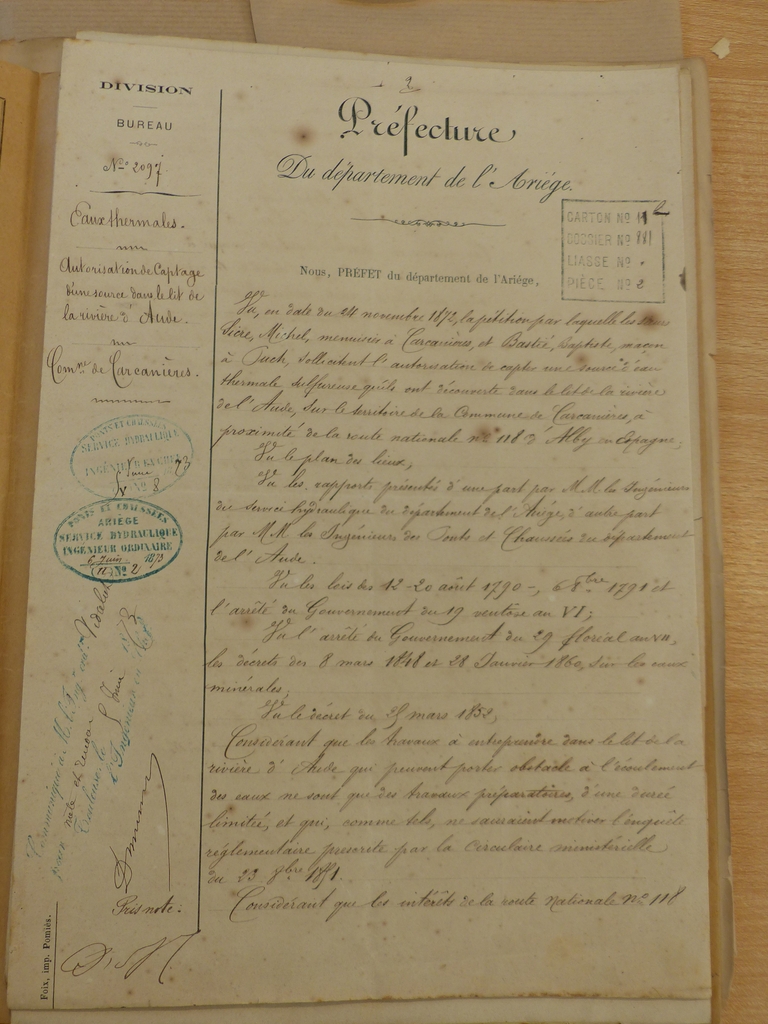 DIVISION
BUREAU
N° 2097
Eaux thermales.
Autorisation de Captage
d'une source dans le lit de
la rivière d'Aude.
Com.ne de Carcanières.
PONTS ET CHAUSSÉES
SERVICE HYDRAULIQUE
INGÉNIEUR EN CHEF
N° 8
PONTS ET CHAUSSÉES
ARIÈGE
SERVICE HYDRAULIQUE
INGÉNIEUR ORDINAIRE
6 Juin 1873
N° 2
Communiqué à M. l'Ing. Vidal
pour note et renvoi
Toulouse, le 5 Juin 1873
L'Ingénieur en chef
Pris note:
Foix, imp. Pomiès.
2
Préfecture
Du département de l'Ariége.
CARTON N° 11
DOSSIER N° 881
LIASSE N°
PIÈCE N° 2
Nous, PRÉFET du département de l'Ariége,
Vu, en date du 24 novembre 1872, la pétition par laquelle les sieurs
Sicre, Michel, menuisier à Carcanières, et Bastié, Baptiste, maçon
à Puch, sollicitent l'autorisation de capter une source d'eau
thermale sulfureuse qu'ils ont découverte dans le lit de la rivière
de l'Aude, sur le territoire de la Commune de Carcanières, à
proximité de la route nationale n° 118 d'Alby en Espagne;
Vu le plan des lieux,
Vu les rapports présentés d'une part par M.M. les Ingénieurs
du service hydraulique du département de l'Ariége, d'autre part
par M.M. les Ingénieurs des Ponts et Chaussées du département
de l'Aude.
Vu les lois des 12-20 août 1790 -, 6 8.bre 1791 et
l'arrêté du Gouvernement du 19 ventose an VI;
Vu l'arrêté du Gouvernement du 29 floréal an VII,
les décrets des 8 mars 1848 et 28 Janvier 1860, sur les eaux
minérales;
Vu le décret du 25 mars 1852,
Considérant que les travaux à entreprendre dans le lit de la
rivière d'Aude qui peuvent porter obstacle à l'écoulement
des eaux ne sont que des travaux préparatoires, d'une durée
limitée, et qui, comme tels, ne sauraient motiver l'enquête
réglementaire prescrite par la Circulaire ministérielle
du 23 8bre 1851.
Considérant que les intérêts de la route Nationale N° 118